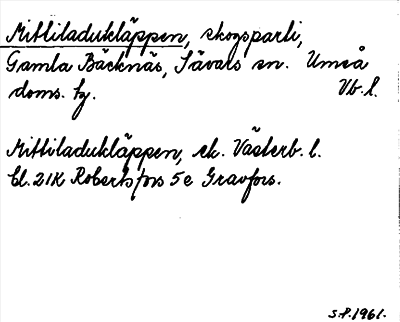 Mittiladukläppen, skogsparti,
Gamla Bäcknäs, Sävars sn. Umeå
doms. hg. Vb. l.
Mittiladukläppen, ek. Västerb. l.
bl. 21K Robertsfors 5e Gravfors.
S.P. 1961.